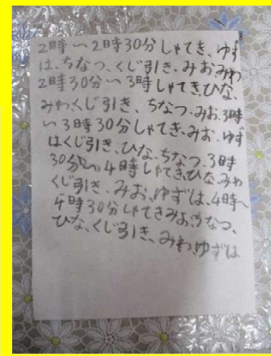 2時〜2時30分しゃてき、ゆず
は、ちなつ、くじ引き、みおみわ
2時30分〜3時しゃてきひな、
みわくじ引き、ちなつ、みお、3時
〜3時30分しゃてき、みお、ゆず
はくじ引き、ひな、ちなつ、3時
30分〜4時しゃてき、ひな、みわ
くじ引き、みお、ゆずは、4時〜
4時30分しゃてきみお、ちなつ、
ひな、くじ引き、みわ、ゆずは